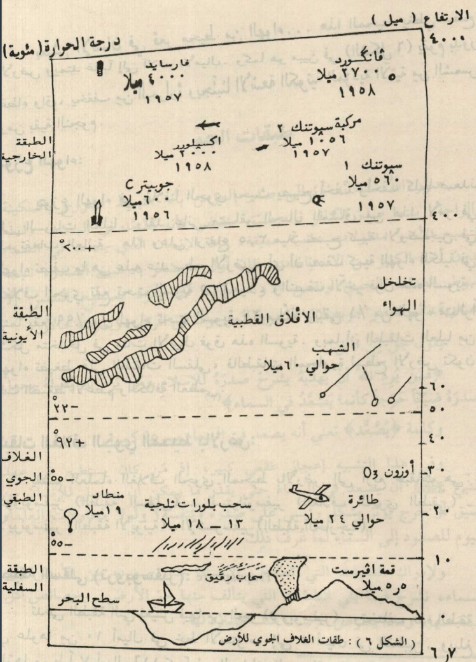 الارتفاع (ميل)
درجة الحرارة (مئوية)
٤٠٠٠
فانكورد
٢٧٠٠ ميلا
١٩٥٨
فارسايد
٤٠٠٠ ميلا
١٩٥٧
مركبة سبوتنك ٢
١٠٥٦ ميلا
١٩٥٧
اكسبلورر
٢٠٠٠ ميلا
١٩٥٨
الطبقة
الخارجية
سبوتنك ١
٥٦٠ ميلا
١٩٥٧
جوبيتر C
٦٠٠ ميلا
١٩٥٦
٤٠٠
٢٠٠٠°
تخلخل
الهواء
الافلاق القطبية
الطبقة
الأيونية
الشهب
حوالي ٦٠ ميلا
٦٠
٥٠
٢٢-°
٤٠
٩٢+°
الغلاف
الجوي
الطبقي
٥٥-°
أوزون O₃
٣٠
طائرة
حوالي ٢٤ ميلا
سحب بلورات ثلجية
١٣ - ١٨ ميلا
منطاد
١٩ ميلا
٢٠
٥٥-°
١٠
الطبقة
السفلية
قمة افيرست
٥٫٥ ميلا
سحاب رقيق
سطح البحر
٠
٦٫٧
(الشكل ٦) : طبقات الغلاف الجوي للأرض